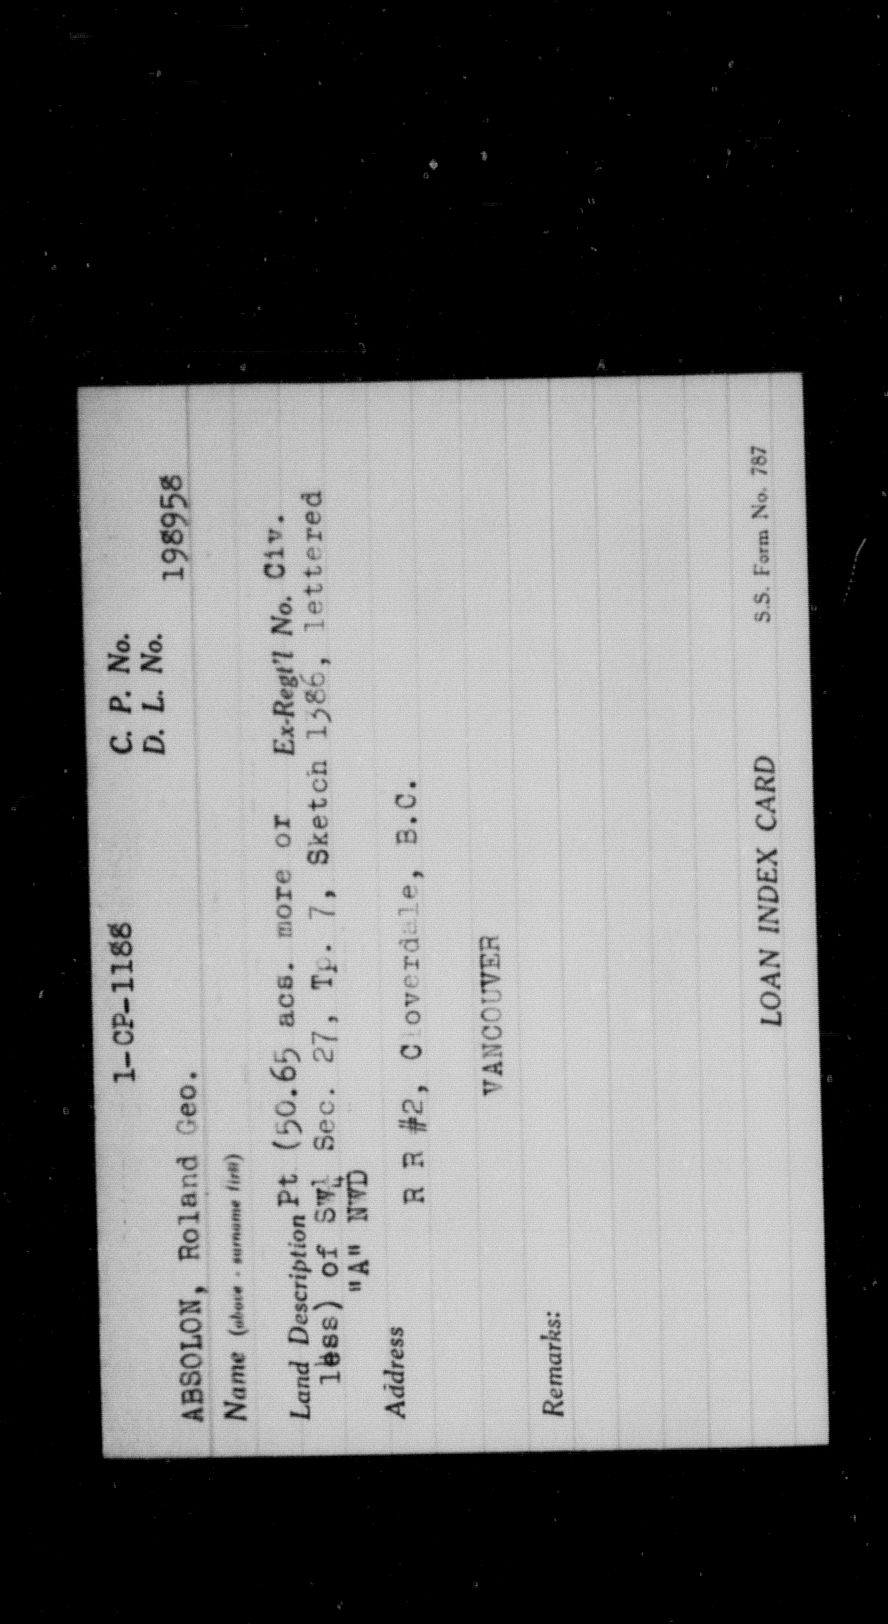 1-CP-1188 C. P. No.
D. L. No.
ABSOLON, Roland Geo. 198958
Name (above - surname first)
Land Description Pt (50.65 acs. more or Ex-Regt'l No. Civ.
less) of SW¼ Sec. 27, Tp. 7, Sketch 1386, lettered
"A" NWD
Address R R #2, Cloverdale, B.C.
VANCOUVER
Remarks:
LOAN INDEX CARD S.S. Form No. 787